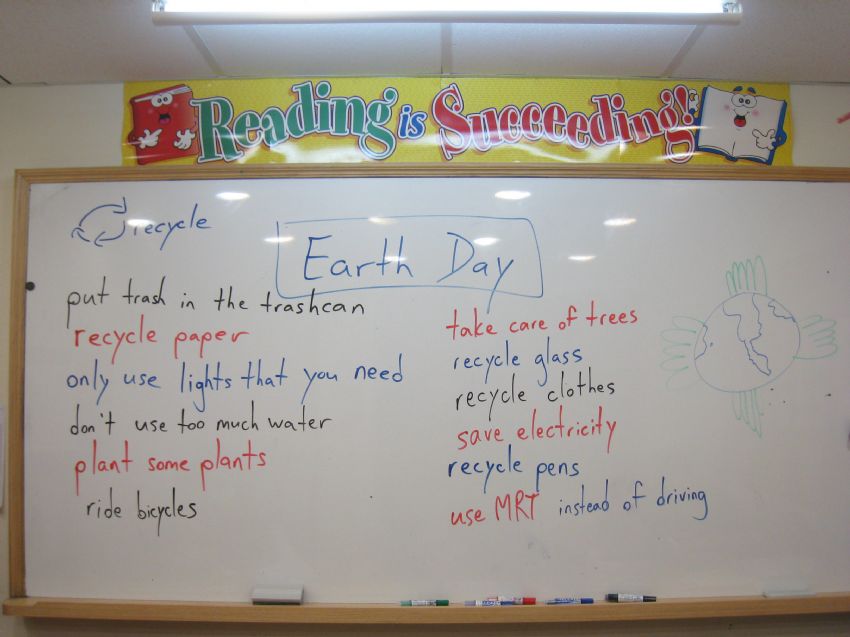 Reading is Succeeding!
recycle
Earth Day
put trash in the trashcan
recycle paper
only use lights that you need
don't use too much water
plant some plants
ride bicycles
take care of trees
recycle glass
recycle clothes
save electricity
recycle pens
use MRT instead of driving